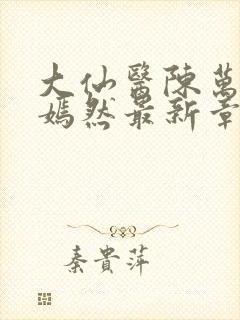 大仙醫陳萬
嫣然最新章
秦貴萍